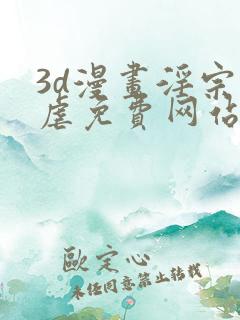 3d漫畫淫宗
虐免費网佔
歐定心
未经同意禁止转载